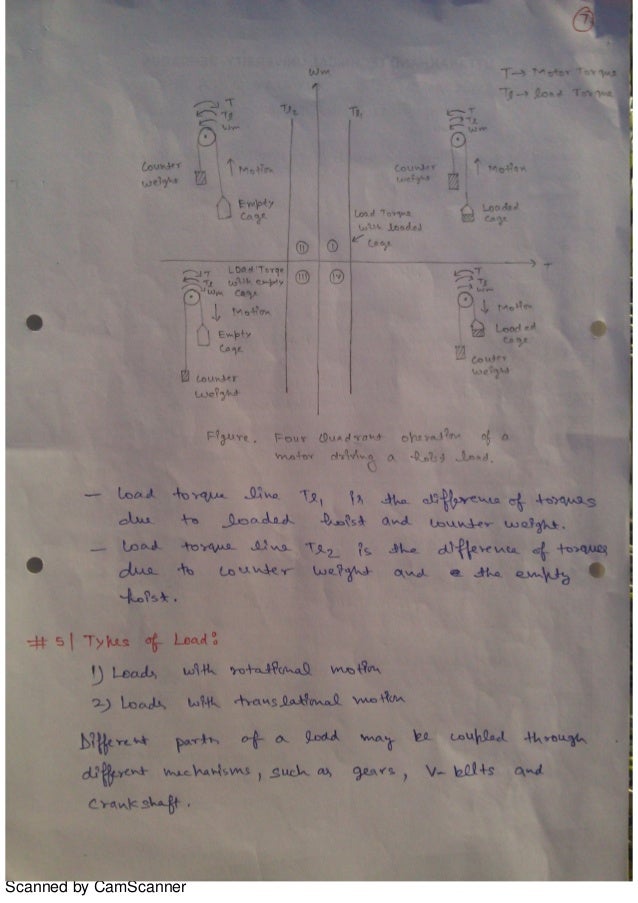 7
T→ Motor Torque
Tl→ load Torque
Wm
T
Tl
Wm
Tl2
Tl1
T
Tl
Wm
Counter
weight
Motion
Empty
Cage
Counter
weight
Motion
Loaded
Cage
Load Torque
with loaded
cage
II
I
T
T
Tl
Wm
Load Torqe
with empty
cage
III
IV
Motion
Empty
Cage
Counter
weight
T
Tl
Wm
Motion
Loaded
Cage
Couter
weight
Figure. Four Quadrant operation of a
motor driving a hoist load.
– Load torque line Tl1 is the difference of torques
due to loaded hoist and counter weight.
– Load torque line Tl2 is the difference of torques
due to counter weight and the empty
hoist.
# 5| Types of Load:
1) Loads with rotational motion
2) Loads with translational motion
Different parts of a load may be coupled through
different mechanisms, such as gears, V-belts and
crankshaft.
Scanned by CamScanner